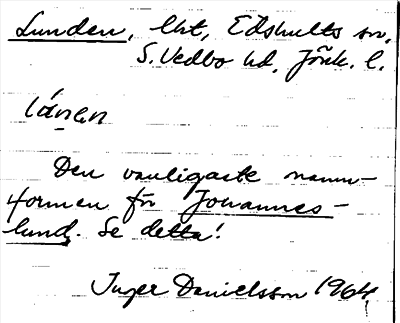 Lunden, lht, Edshults sn,
S. Vedbo hd, Jönk. l.
lánen
Den vanligaste namn-
formen för Johannes-
lund. Se detta!
Inger Danielsson 1964